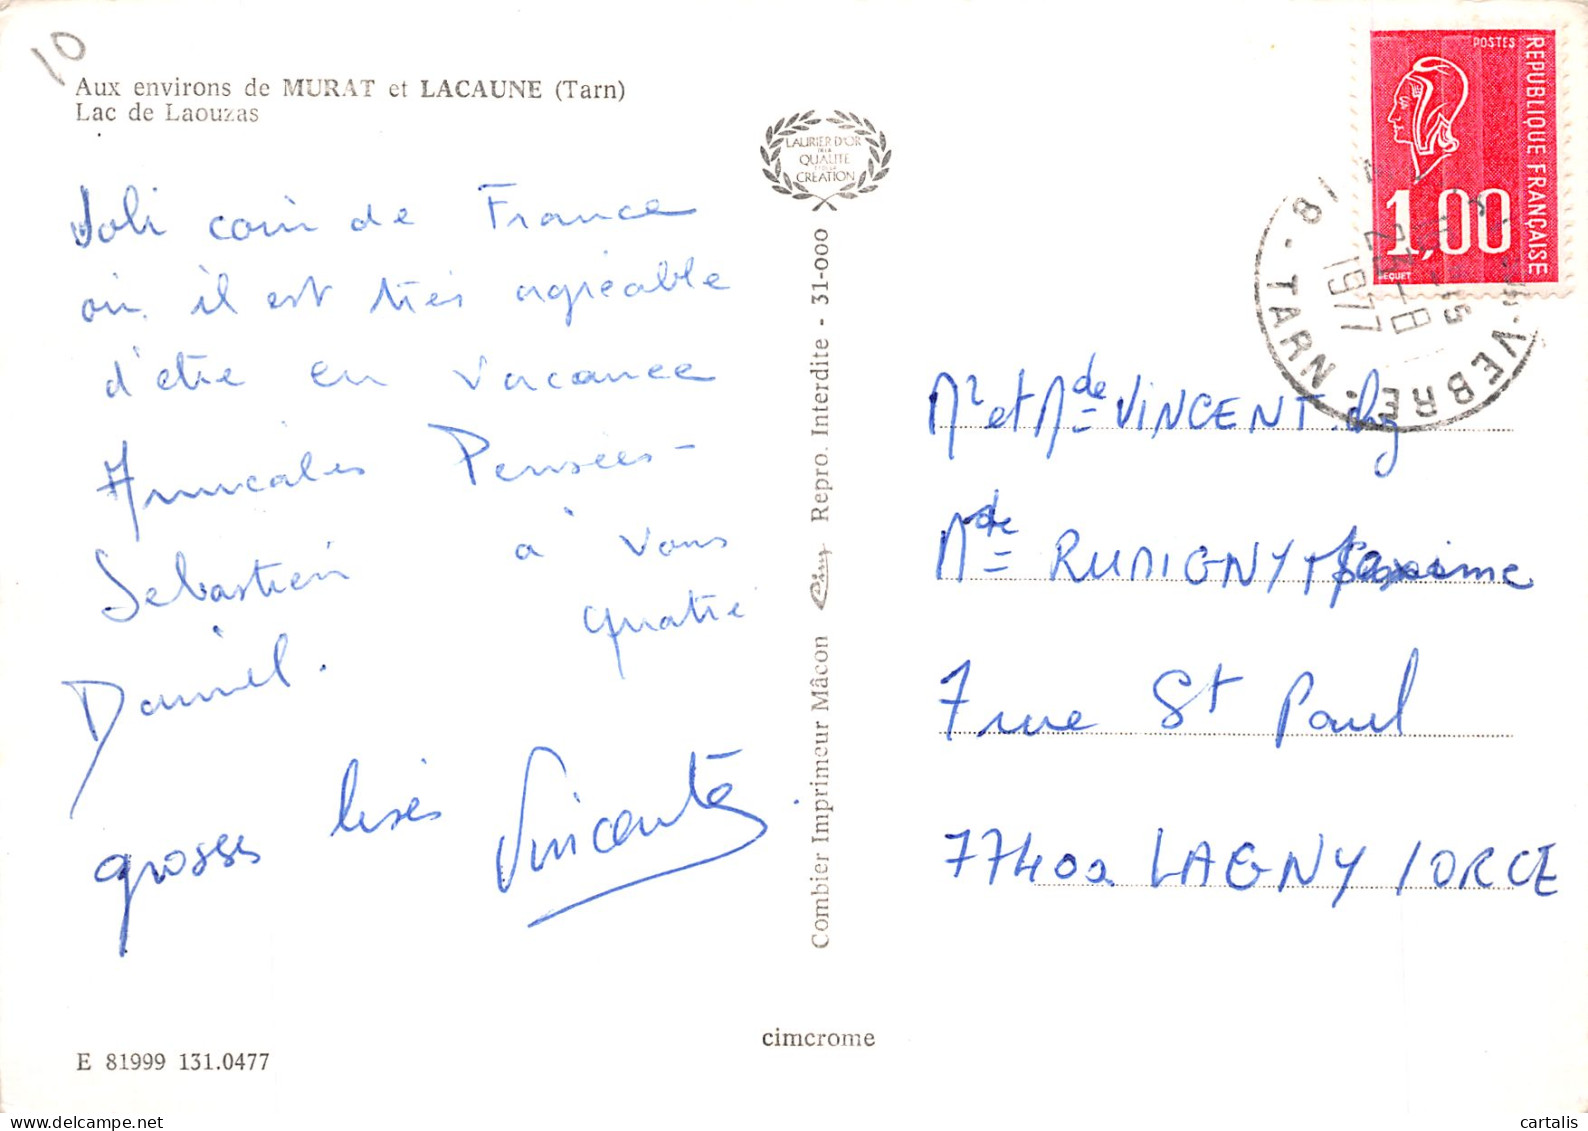 10
Aux environs de MURAT et LACAUNE (Tarn)
Lac de Laouzas
Joli coin de France
où il est très agréable
d'être en vacance
Amicales Pensées -
Sebastien à vous
Daniel. quatre
grosses bises Vincente
E 81999 131.0477
LAURIER D'OR
DE LA
QUALITE
CREATION
Combier Imprimeur Mâcon Cim Repro. Interdite - 31-000
cimcrome
POSTES
REPUBLIQUE FRANÇAISE
1,00
BEQUET
81 - TARN - VEBRE
23-8
1977
Mr et Mde VINCENT chez
Mde RUDIGNY Maxime
7 rue St Paul
77400 LAGNY / ORCE
cartalis